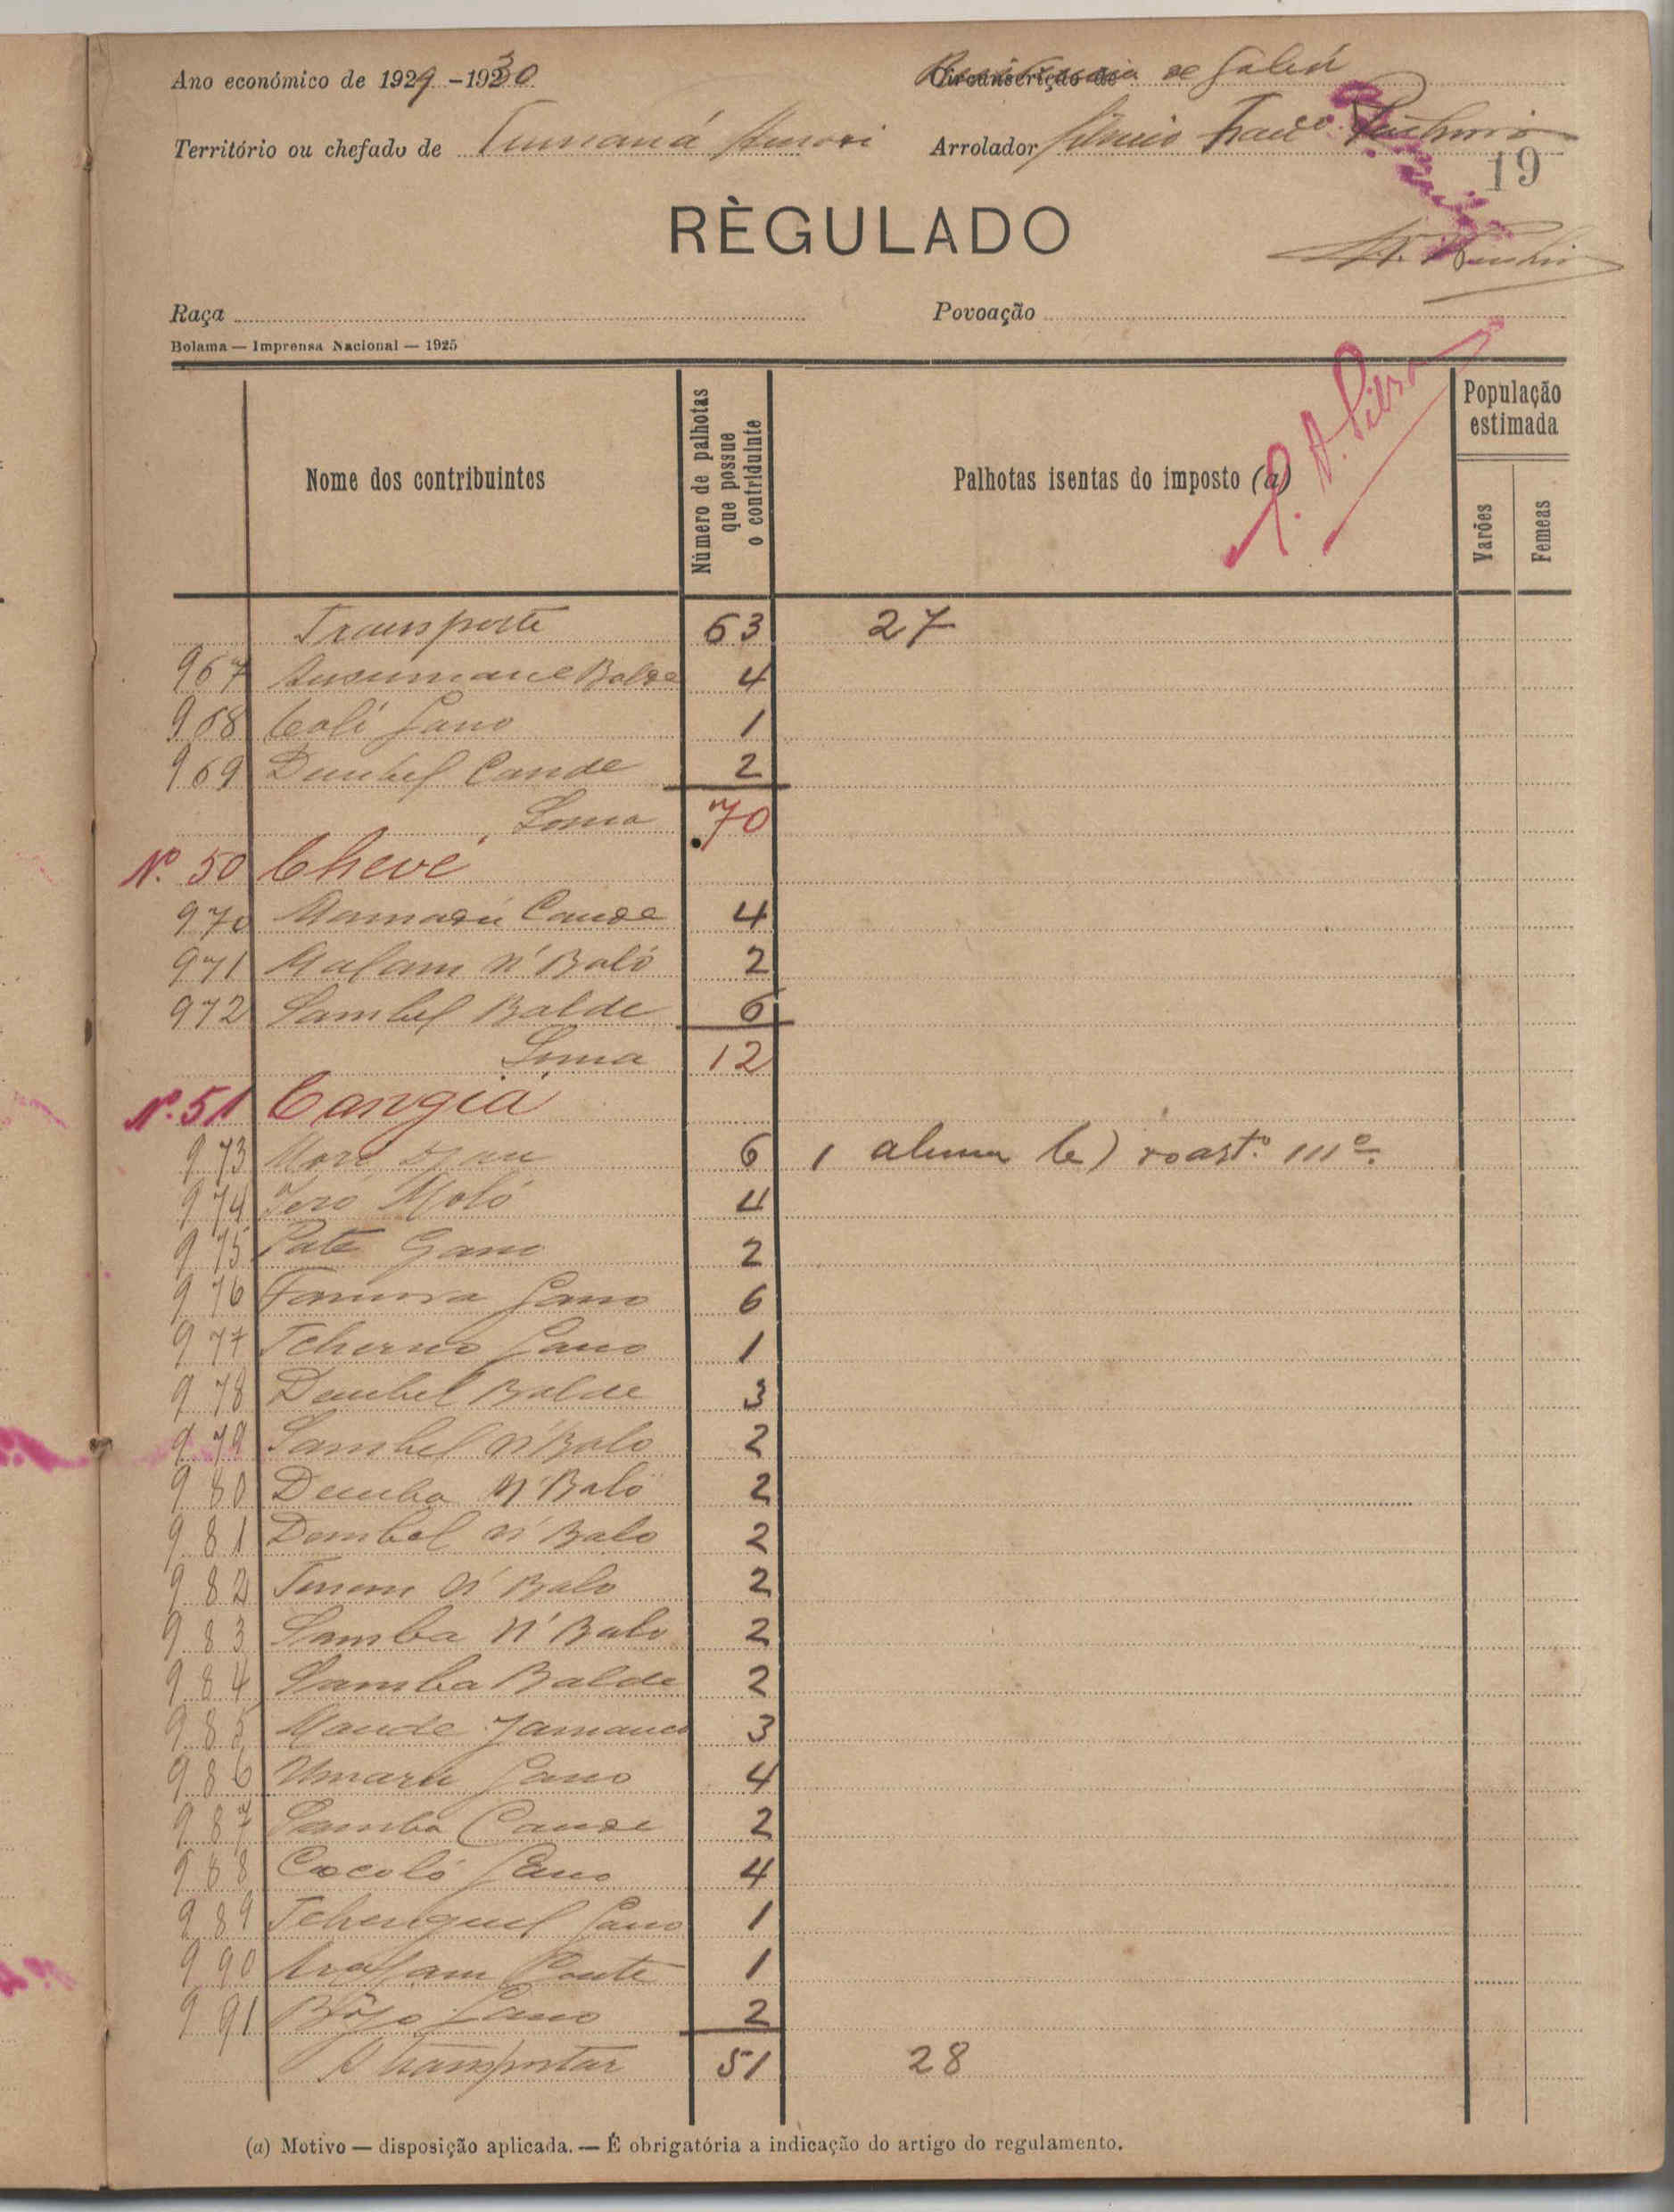 Ano económico de 1929-1930
Circunscrição de
Território ou chefado de Tumaná
Arrolador
19
RÈGULADO
Raça
Povoação
Bolama — Imprensa Nacional — 1925
Nome dos contribuintes
Número de palhotas que possue o contriduinte
Palhotas isentas do imposto (a)
População estimada
Varões
Femeas
Transporte 63 27
967 Balde 4
968 Coli Gano 1
969 Dembel Cande 2
Soma 70
Nº 50 Chevé
970 Mamadú Cande 4
971 Malam N'Baló 2
972 Sambel Balde 6
Soma 12
Nº 51 Cangiá
973 6 1
974 Moló 4
975 Pate Gano 2
976 Gano 6
977 Tcherno Gano 1
978 Dembel Balde 3
979 Sambel N'Balo 2
980 Demba N'Baló 2
981 Dembel N'Balo 2
982 N'Balo 2
983 Samba N'Balo 2
984 Samba Balde 2
985 3
986 Umarú Gano 4
987 Samba Cande 2
988 Gano 4
989 Gano 1
990 1
991 Gano 2
A transportar 51 28
(a) Motivo — disposição aplicada. — É obrigatória a indicação do artigo do regulamento.